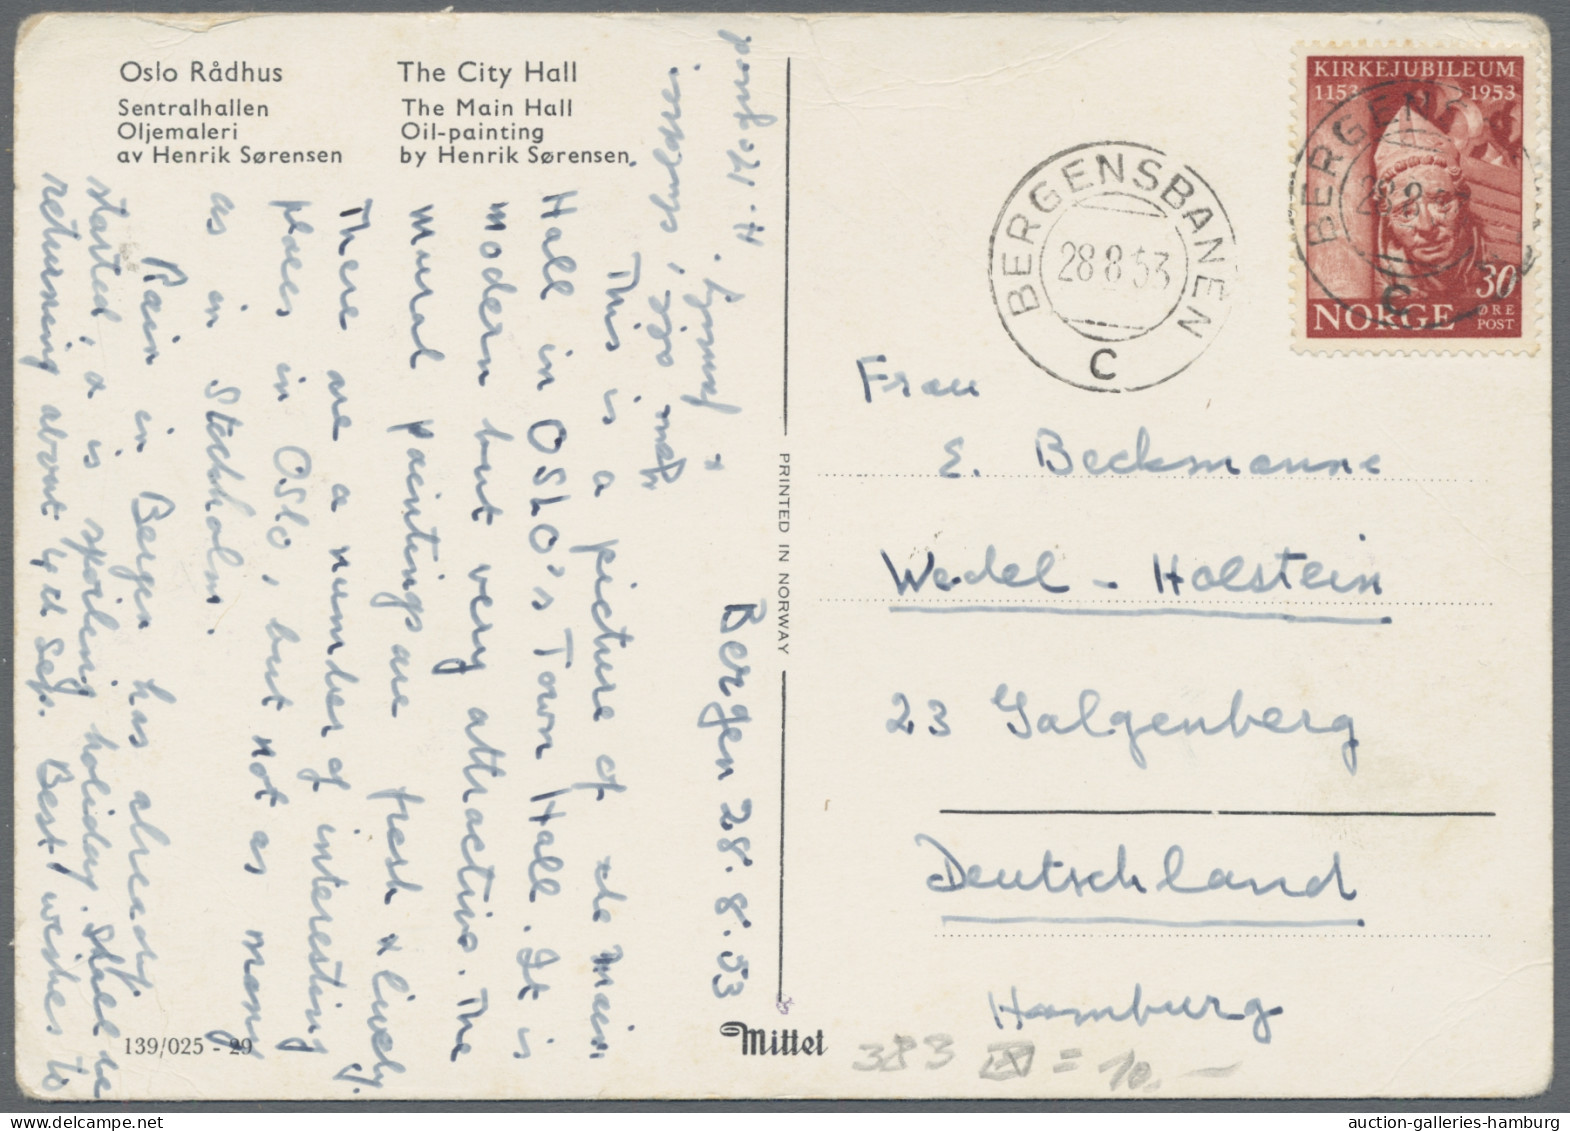 Oslo Rådhus
Sentralhallen
Oljemaleri
av Henrik Sørensen
The City Hall
The Main Hall
Oil-painting
by Henrik Sørensen
Bergen 28.8.53
This is a picture of the Main
Hall in OSLO's Town Hall. It is
modern but very attractive. The
mural paintings are fresh & lively.
There are a number of interesting
places in Oslo, but not as many
as in Stockholm.
Rain in Bergen has already
started, & is spoiling holiday. Shall be
returning about 4th Sep. Best wishes to
family.
PRINTED IN NORWAY
Mittet
139/025 - 29
KIRKEJUBILEUM
1153 1953
30
ØRE
NORGE POST
BERGENSBANEN
28 8 53
C
BERGENS
28 8
C
Frau
E. Beckmanne
Wedel - Holstein
23 Galgenberg
Deutschland
Hamburg
383 = 10.-
auction-galleries-hamburg